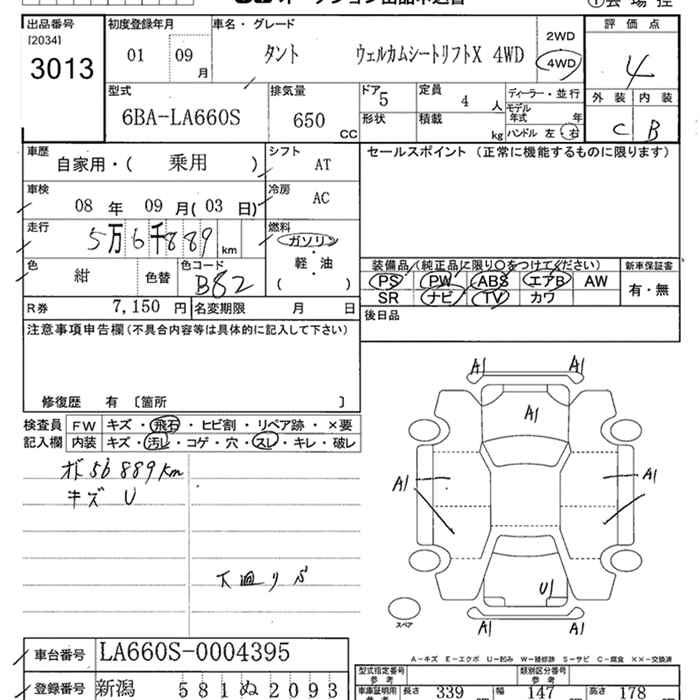 出品番号
[2034]
3013
初度登録年月
01 09 月
車名・グレード
タント ウェルカムシートリフトX 4WD
2WD
4WD
評価点
4
外装 内装
C B
型式
6BA-LA660S
排気量
650 CC
ドア
5
形状
定員
4 人
積載
kg
ディーラー・並行
モデル
年式 年
ハンドル 左・右
車歴
自家用・( 乗用 )
シフト
AT
車検
08 年 09 月(03 日)
冷房
AC
走行
5万6千889 km
燃料
ガソリン
軽・油
( ・ )
色
紺
色替
色コード
B82
R券 7,150 円
名変期限 月 日
セールスポイント (正常に機能するものに限ります)
装備品(純正品に限り○をつけてください)
新車保証書
PS PW ABS エアB AW
SR ナビ TV カワ
有・無
後日品
注意事項申告欄(不具合内容等は具体的に記入して下さい)
修復歴 有 〔箇所 〕
検査員
記入欄
FW キズ・飛石・ヒビ割・リペア跡・×要
内装 キズ・汚レ・コゲ・穴・スレ・キレ・破レ
56889km
キズ U
下廻りS
A1 A1
A1
A1 A1
U1
A1 A1
スペア
A-キズ E-エクボ U-凹み W-補修跡 S-サビ C-腐食 XX-交換済
車台番号 LA660S-0004395
登録番号 新潟 581 ぬ 2093
型式指定番号
参考
類別区分番号
参考
車庫証明用
参考
長さ 339 cm
幅 147 cm
高さ 178 cm